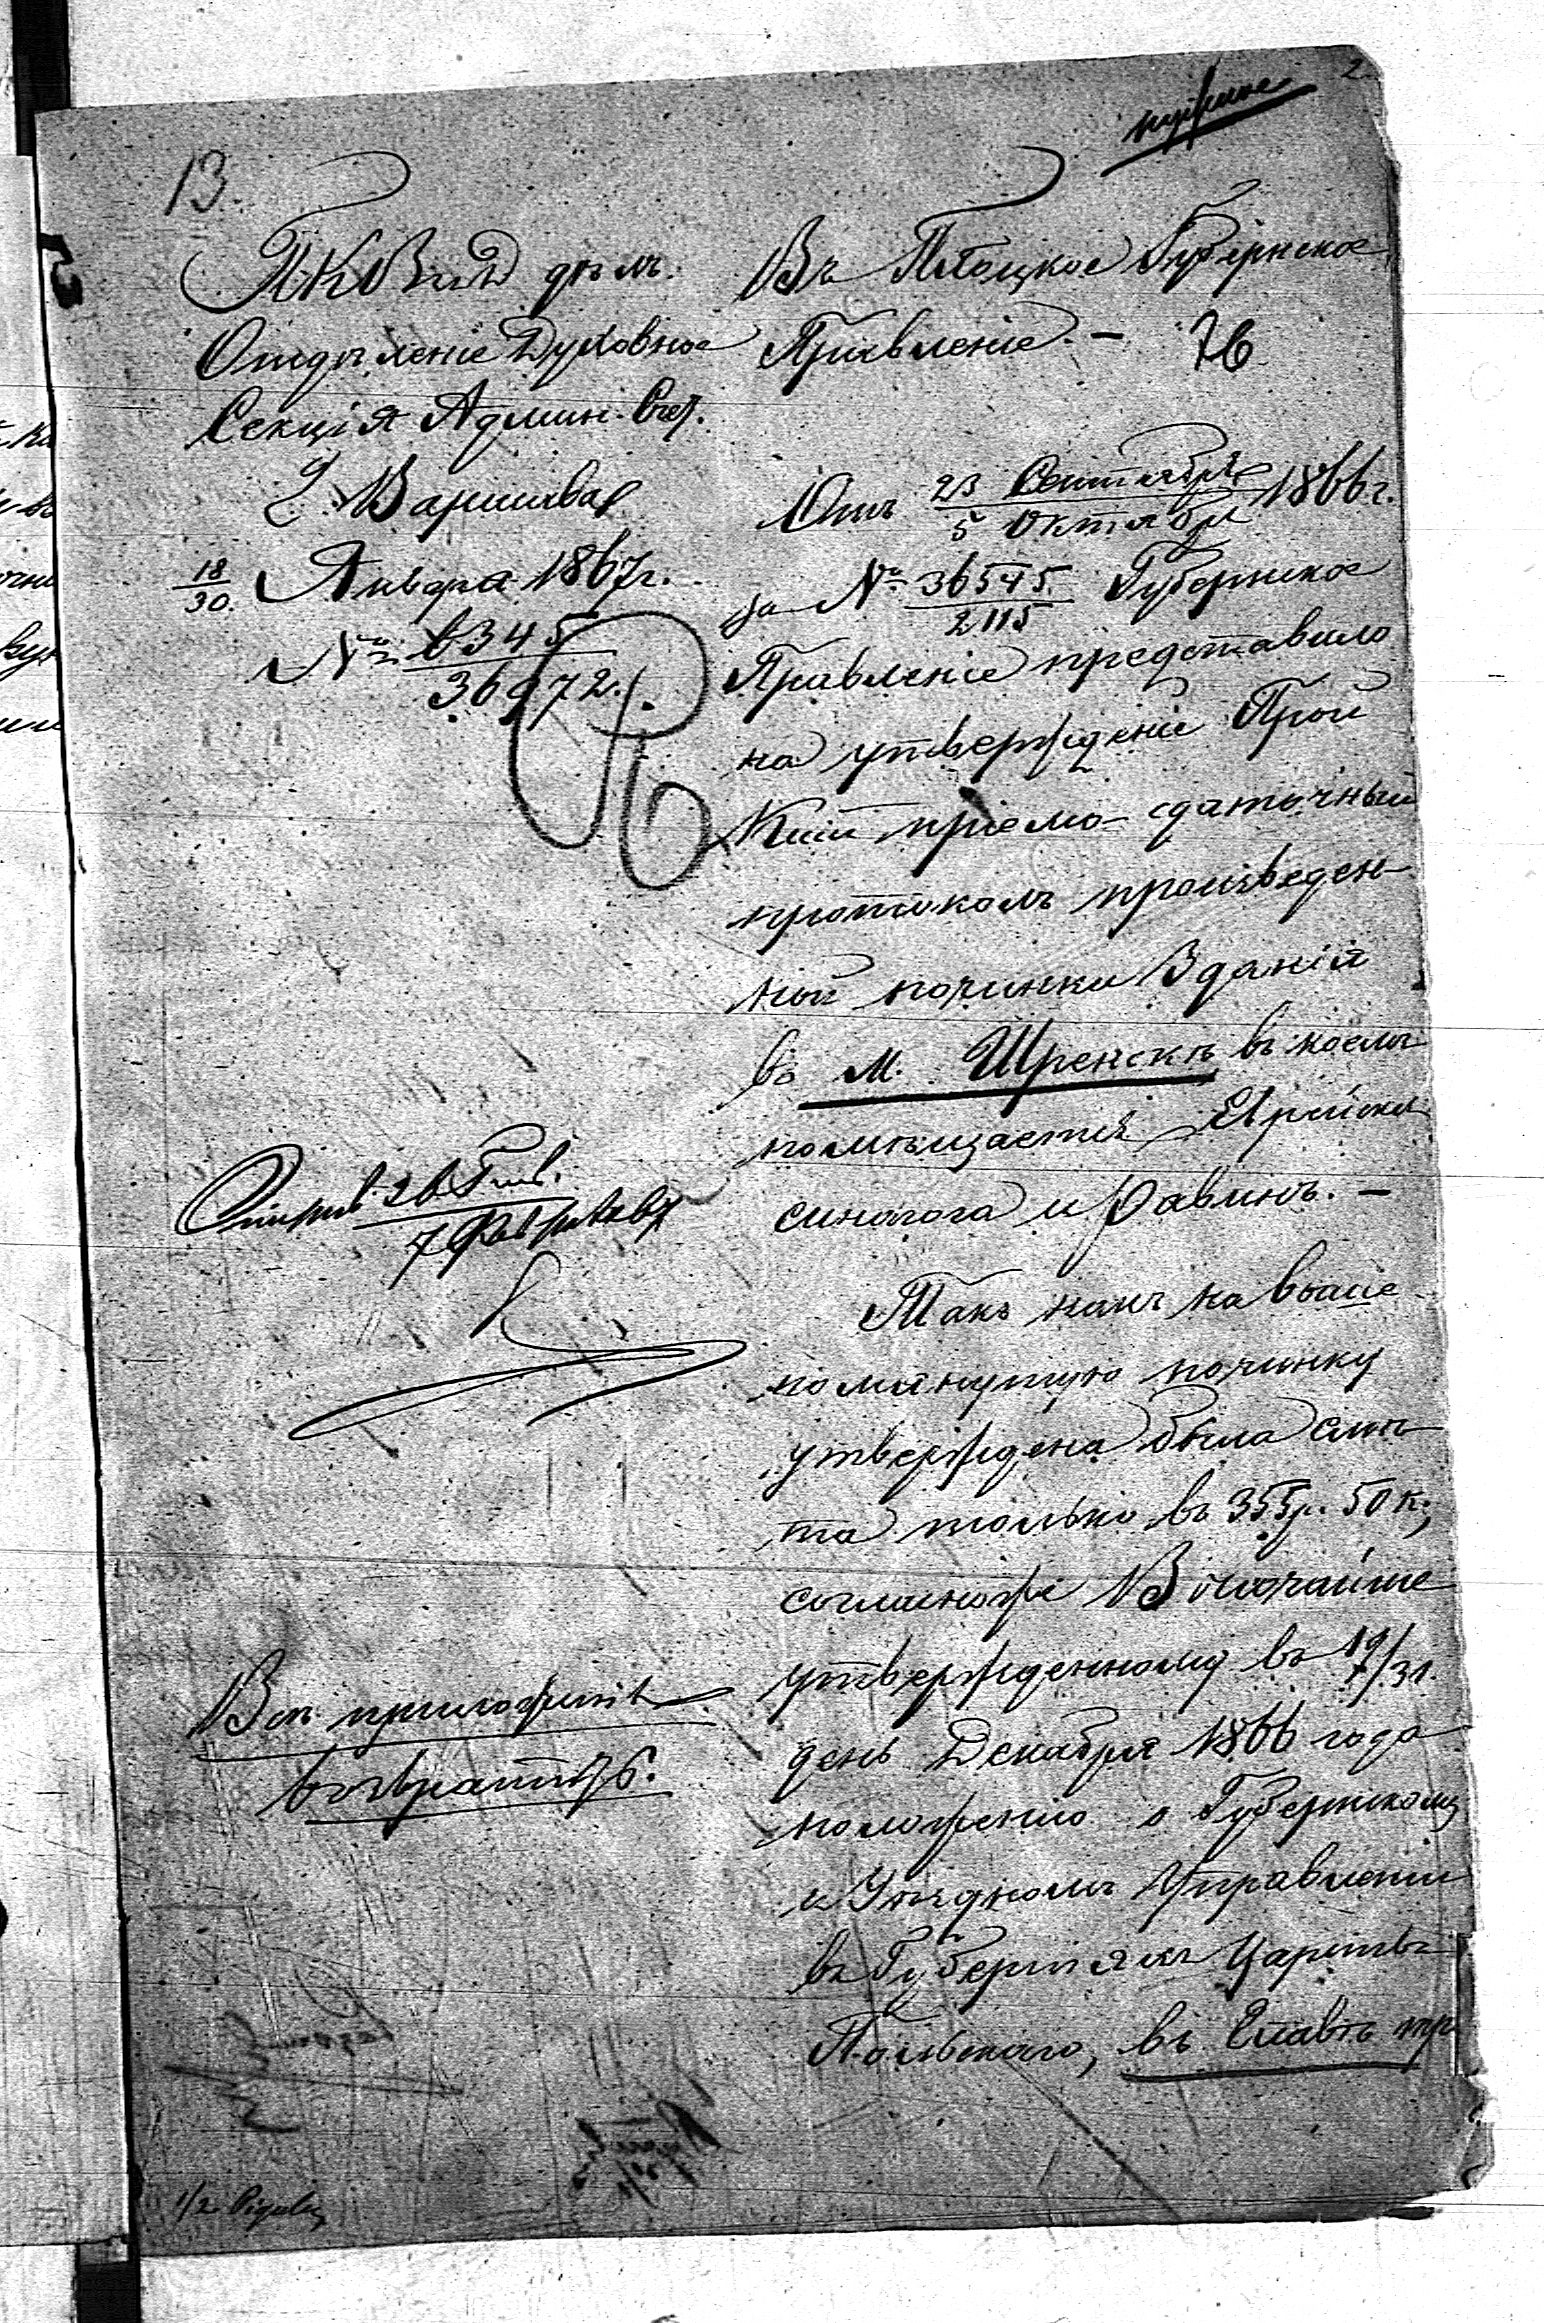 2
13.
ПКВнД дѣлъ.
Отдѣленіе Духовное
Секція Админ. Счет.
г. Варшава
18/30. Января 1867 г.
№ 6345/36972.
Въ Плоцкое Губернское
Правленіе. — 76
Отъ 23 Сентября/5 Октября 1866 г.
за № 36545./2115 Губернское
Правленіе представило
на утвержденіе Прой
Кіи пріемо-сдаточный
протоколъ произведен-
ной починки зданія
въ м. Шренскѣ въ коемъ
помѣщается Еврейская
синагога и равинъ. —
Такъ какъ на выше
помянутую починку
утверждена была смѣ
та только въ 355 р. 50 к;
согласноже Высочайше
утвержденному въ 19/31.
день Декабря 1866 года
положенію о Губернскомъ
и Уѣздномъ Управленіи
въ Губерніяхъ Царства
Польскаго, въ Главѣ тр
7 Февраля
Всѣ приложенія
возвратить.
1/2